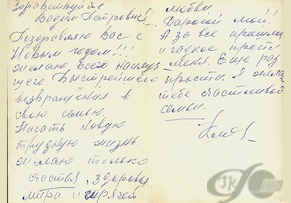 Здравствуйте
Вадим Петрович!
Поздравляю Вас с
Новым годом!!!
Желаю всего наилуч
шего, быстрейшего
возвращения в
свою семью.
Начать новую
трудную жизнь.
Желаю только
счастья, здоровья
мира и горячей
любви.
Дорогой мой!
А за все прошлое
и гадкое прости
меня. Еще раз
прости. Я желаю
тебе счастливой
семьи.